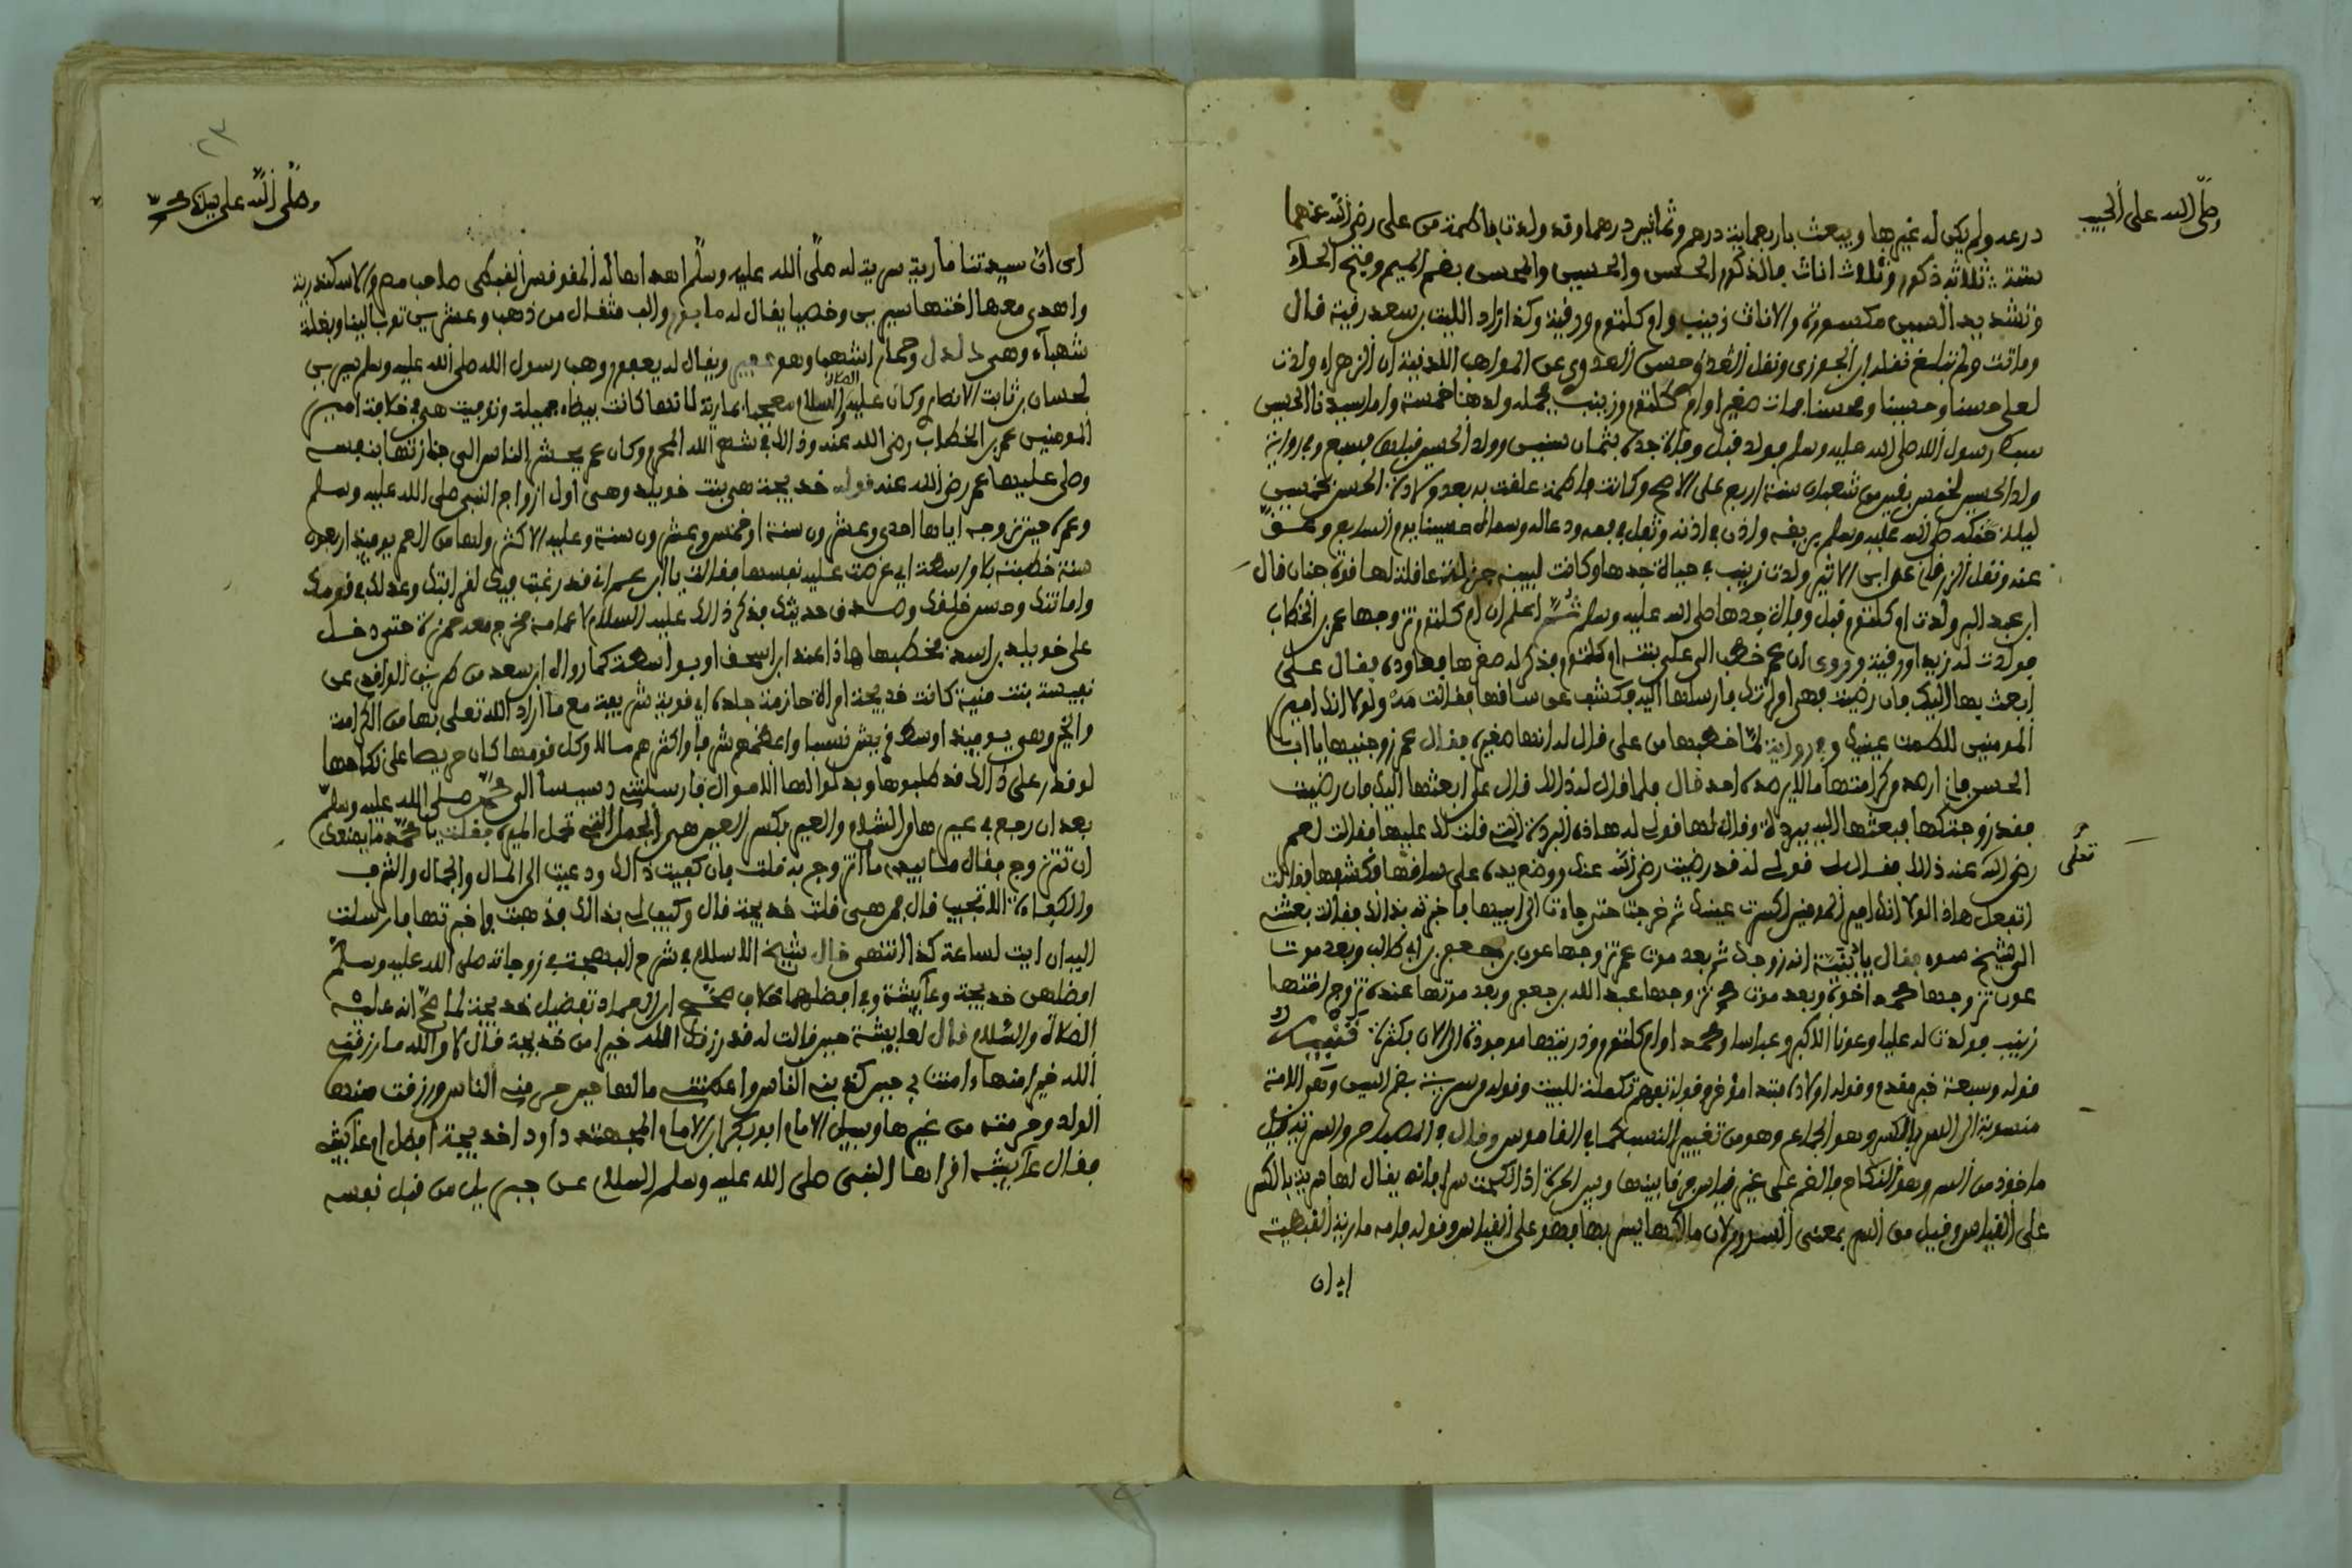 وصلى الله على الحبيب
درعه ولم يكن له غيرها وبيعت باربعماية درهم وثمانين درهما وقد ولدت فاطمة من على رضى الله عنهما
ستة ثلاثة ذكور وثلاث اناث فالذكور الحسن والحسين والمحسن بضم الميم وفتح الحاء
وتشديد السين مكسورة والاناث زينب وام كلثوم ورقية وكذا زاد الليث بن سعد رقية قال
وماتت ولم تبلغ نقله ابن الجوزى ونقل حسن العدوى عن المواهب اللدنية ان الزهراء ولدت
لعلى حسنا وحسينا ومحسنا مات صغيرا وام كلثوم وزينب فجملة ولدها خمسة واما سيدنا الحسن
سبط رسول الله صلى الله عليه وسلم فولد قبل وفاة جده بثمان سنين وولد الحسين قبلها بسبع وفى رواية
ولد الحسين لخمس بقين من شعبان سنة اربع على الاصح وكانت فاطمة علقت به بعد ولادة الحسن بخمسين
ليلة حنكه صلى الله عليه وسلم بريقه واذن فى اذنه وتفل فى فمه ودعا له وسماه حسينا يوم السابع وعق
عنه ونقل الزرقانى عن ابن الاثير ولدت زينب فى حياة جدها وكانت لبيبة جزلة عاقلة لها قوة جنان قال
ابن عبد البر ولدت ام كلثوم قبل وفاة جدها صلى الله عليه وسلم اعلم ان ام كلثوم تزوجها عمر بن الخطاب
فولدت له زيدا ورقية وروى ان عمر خطب الى على بنته ام كلثوم فذكر له صغرها فعاوده فقال على
ابعث بها اليك فان رضيت فهى امراتك فارسلها اليه فكشف عن ساقها فقالت مه لولا انك امير
المومنين للطمت عينيك وفى رواية لما خطبها من على قال له انها صغيرة فقال عمر زوجنيها يا ابا
الحسن فانى ارصد من كرامتها ما لا يرصده احد قال فلما قال له ذلك قال على ابعثها اليك فان رضيت
فقد زوجتكها فبعثها اليه ببردة وقال لها قولى له هاذه البردة التى قلت لك عليها فقالت لعمر
تعلى
رضى الله عنه ذلك فقال لها قولى له قد رضيت رضى الله عنك ووضع يده على ساقها وكشفها فقالت
اتفعل هاذا لولا انك امير المومنين لكسرت عينيك ثم خرجت حتى جاءت الى ابيها فاخبرته بذالك فقالت بعثتنى
الى شيخ سوء فقال يابنية انه زوجك ثم بعد موت عمر تزوجها عون بن جعفر بن ابى طالب وبعد موت
عون تزوجها محمد اخوه وبعد موت محمد تزوجها عبد الله بن جعفر وبعد موتها عنده تزوج اختها
زينب فولدت له عليا وعونا الاكبر وعباسا ومحمدا وام كلثوم وذريتها موجودة الى الان بكثرة
قوله وسبعة خبر مقدم وقوله اولاده مبتدا مؤخر وقوله تكملة للبيت وقوله وسرية بضم السين وهى الامة
منسوبة الى السر بالكسر وهو الجماع وهو من تغيير النسب كما فى القاموس وقال فى المصباح والسرية قيل
ماخوذ من السر وهو النكاح فالضم على غير قياس فرقا بينها وبين الحرة اذا نكحت سرا فانه يقال لها سرية بالكسر
على القياس وقيل من السر بمعنى السرور لان مالكها يسر بها فهو على القياس وقوله مارية القبطية
اى ان
٢٣
وصلى الله على نبينا محمد
اى ان سيدتنا مارية سرية له صلى الله عليه وسلم اهداها له المقوقس القبطى صاحب مصر والاسكندرية
واهدى معها اختها سيرين وخصيا يقال له مابور والف مثقال من ذهب وعشرين ثوبا لينا وبغلة
شهباء وهى دلدل وحمارا اشهبا وهو عفير ويقال له يعفور ووهب رسول الله صلى الله عليه وسلم سيرين
لحسان بن ثابت الانصارى وكان عليه الصلاة والسلام معجبا بمارية لانها كانت بيضاء جميلة وتوفيت هى فى خلافة امير
المومنين عمر بن الخطاب رضى الله عنه وذالك فى شهر الله المحرم وكان عمر يحشر الناس الى جنازتها بنفسه
وصلى عليها عمر رضى الله عنه قوله خديجة هى بنت خويلد وهى اول ازواج النبى صلى الله عليه وسلم
وعمره حين تزوجه اياها احدى وعشرون سنة او خمس وعشرون سنة وعليه الاكثر ولها من العمر يوميذ اربعون
سنة خطبته بلا واسطة اى عرضت عليه نفسها فقالت يا ابن عم انى قد رغبت فيك لقرابتك وعدلك فى قومك
وامانتك وحسن خلقك وصدق حديثك فذكر ذالك عليه السلام لاعمامه فخرج معه حمزة حتى دخل
على خويلد بن اسد فخطبها هاذا عند ابن اسحق او بواسطة كما رواه ابن سعد من طريق الواقدى عن
نفيسة بنت منية كانت خديجة امراة حازمة جلدة اى قوية شريفة مع ما اراد الله تعلى بها من الكرامة
والخير وهى يوميذ اوسط قريش نسبا واعظمهم شرفا واكثرهم مالا وكل قومها كان حريصا على نكاحها
لو قدر على ذالك قد طلبوها وبذلوا لها الاموال فارسلتنى دسيسا الى محمد صلى الله عليه وسلم
بعد ان رجع فى عيرها من الشام والعير بكسر العين هى الجمال التى تحمل الميرة فقلت يا محمد ما يمنعك
ان تتزوج فقال ما بيدى ما اتزوج به قلت فان كفيت ذالك ودعيت الى المال والجمال والشرف
والكفاءة الا تجيب قال فمن هى قلت خديجة قال وكيف لى بذالك فذهبت واخبرتها فارسلت
اليه ان ايت لساعة كذا انتهى قال شيخ الاسلام فى شرح البهجة فى زوجاته صلى الله عليه وسلم
افضلهن خديجة وعايشة وفى افضلهما خلاف صحح ابن العماد تفضيل خديجة لما صح انه عليه
الصلاة والسلام قال لعايشة حين قالت له قد رزقك الله خيرا من خديجة قال لا والله ما رزقنى
الله خيرا منها ءامنت بى حين كذبنى الناس واعطتنى مالها حين حرمنى الناس ورزقت منها
الولد وحرمته من غيرها وسيل الامام ابو بكر ابن الامام المجتهد داود اخديجة افضل ام عايشة
فقال عايشة اقراها النبى صلى الله عليه وسلم السلام عن جبريل من قبل نفسه